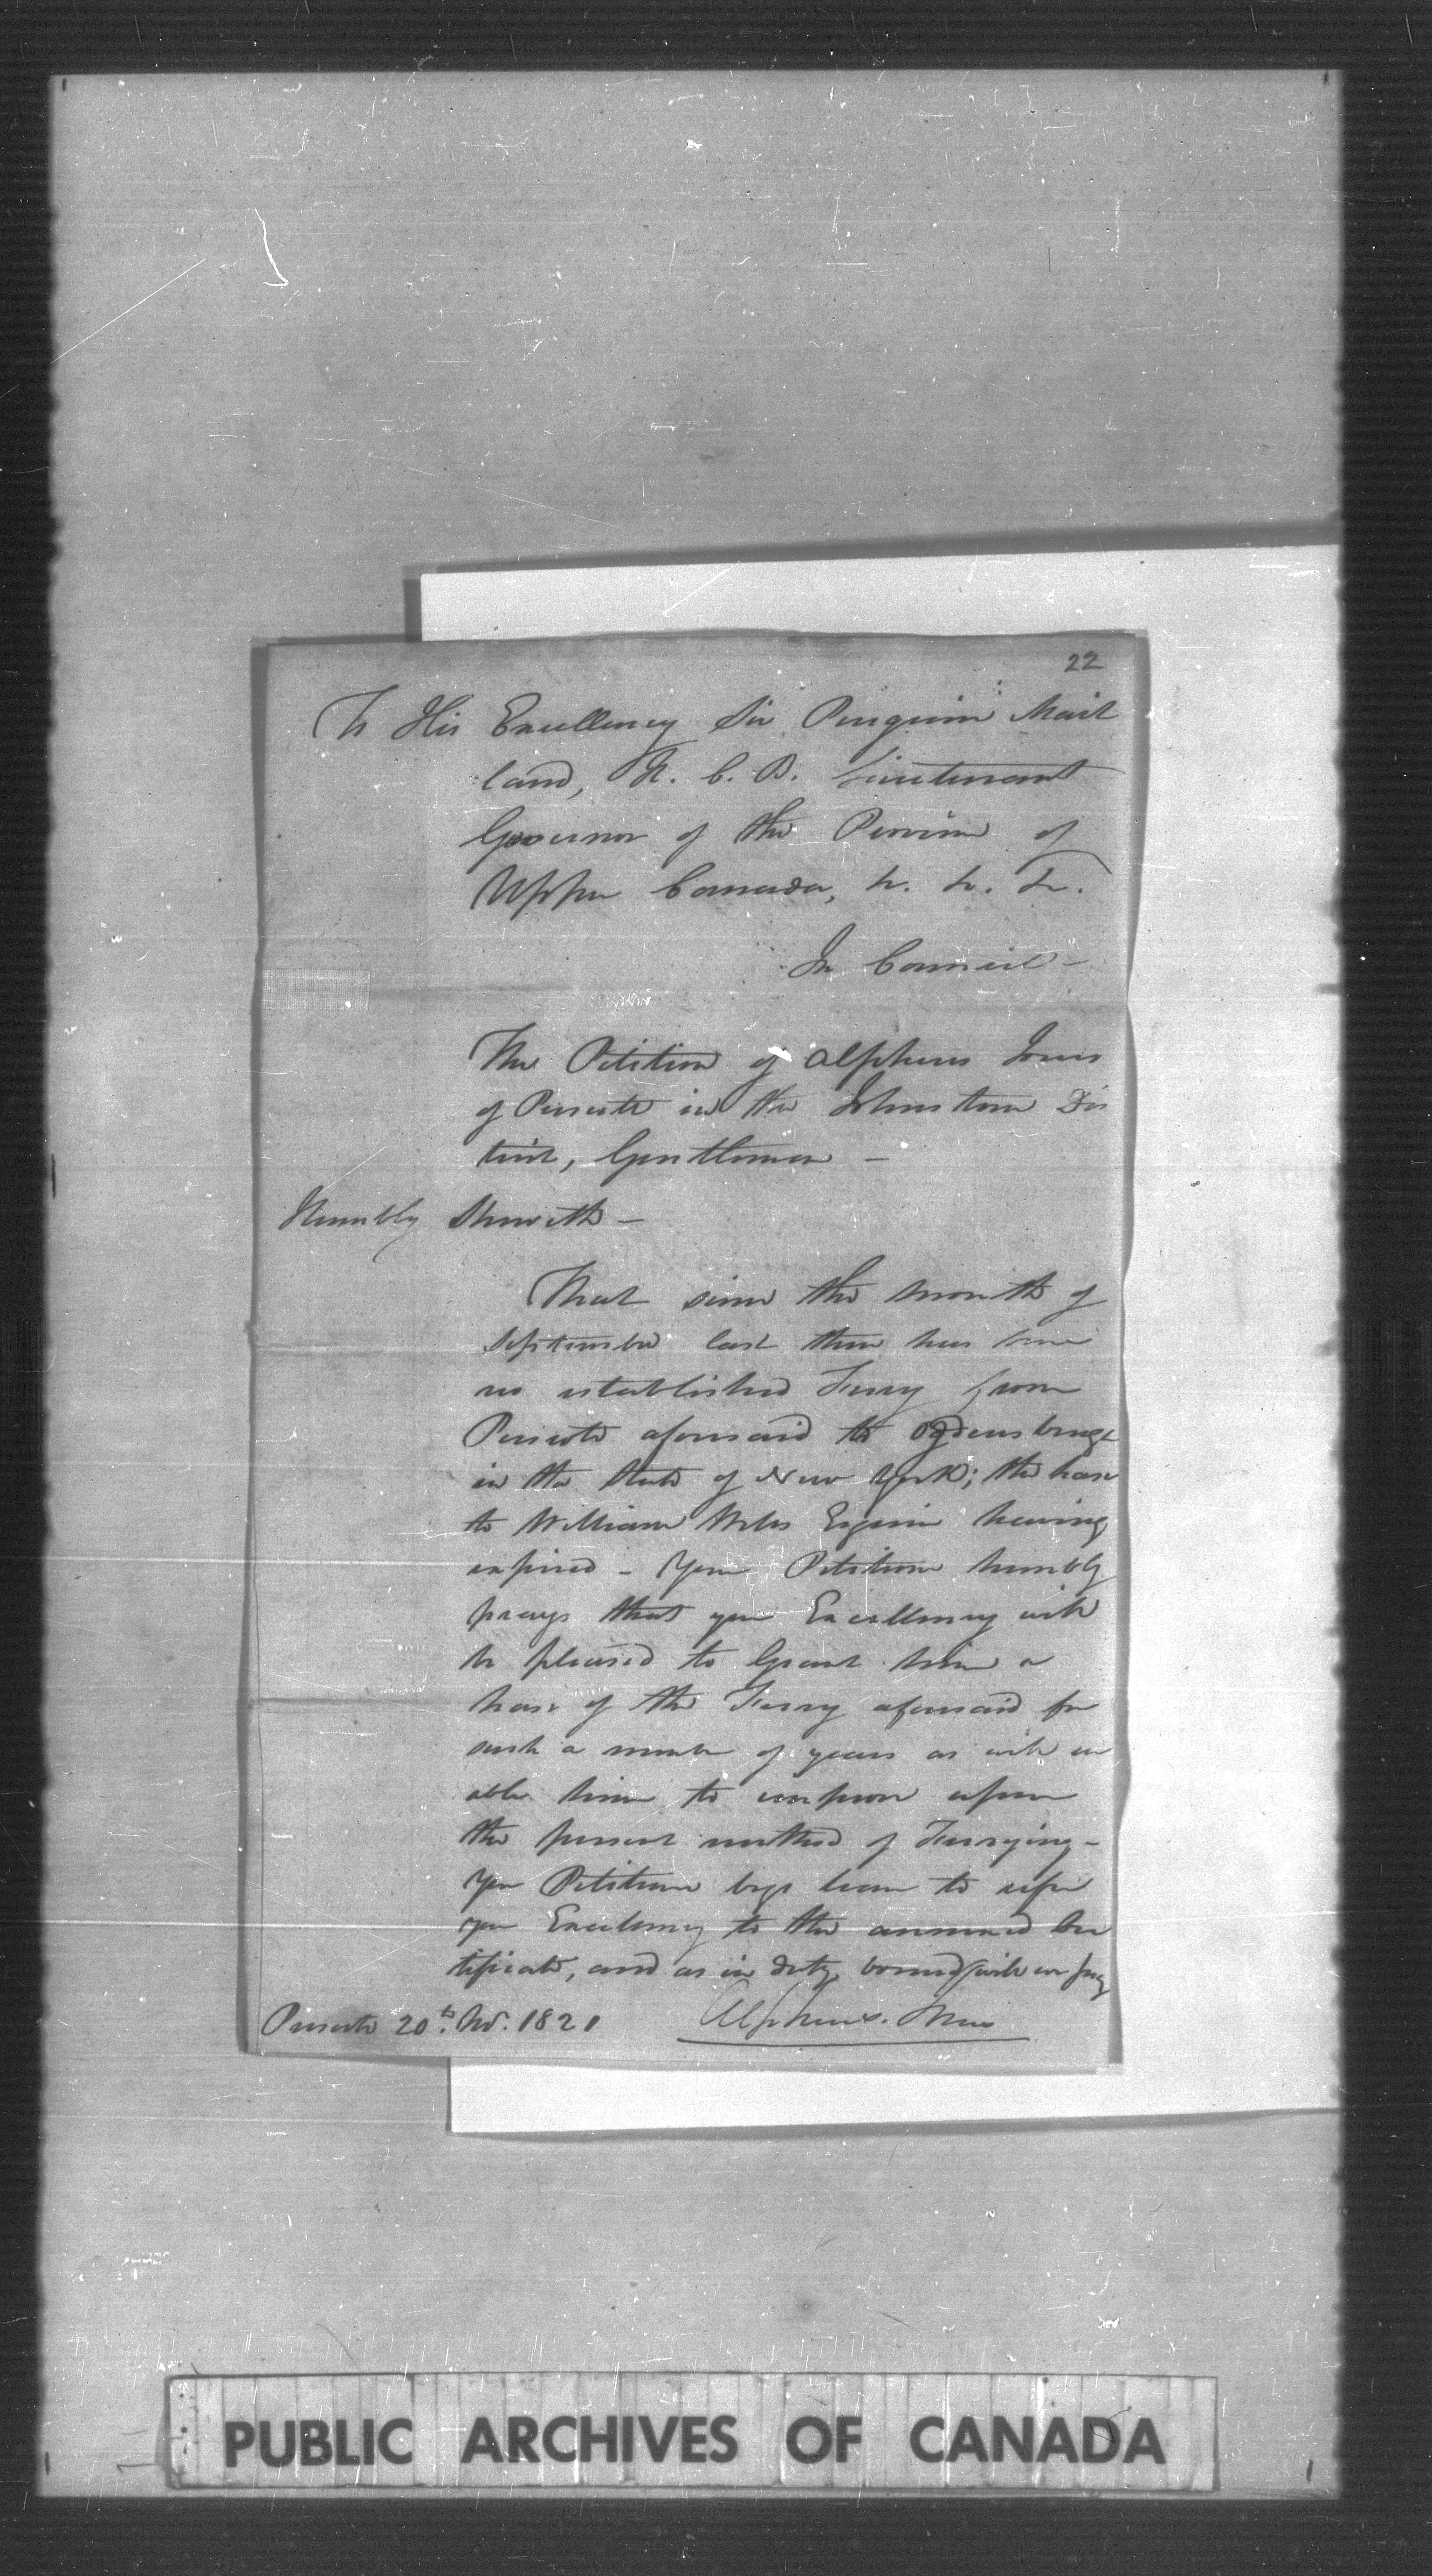 22
To His Excellency Sir Peregrine Mait
land, K. C. B. Lieutenant
Governor of the Province of
Upper Canada, &c. &c. &c.
In Council -
The Petition of Alpheus Jones
of Prescott in the Johnstown Dis
trict, Gentleman -
Humbly Sheweth -
That since the month of
September last there has been
no established Ferry from
Prescott aforesaid to Ogdensburgh
in the State of New York; the lease
to William Wells Esquire having
expired - Your Petitioner humbly
prays that your Excellency will
be pleased to Grant him a
lease of the Ferry aforesaid for
such a number of years as will en
able him to improve upon
the present method of Ferrying -
Your Petitioner begs leave to refer
your Excellency to the annexed Cer
tificate, and as in duty bound will ever pray
Prescott 20th. Nov. 1821 Alpheus Jones
PUBLIC ARCHIVES OF CANADA